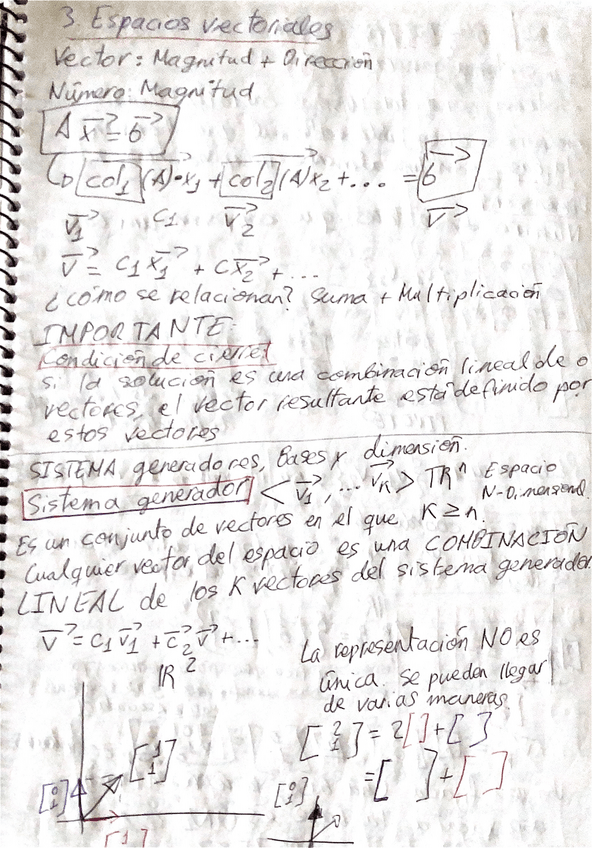 3. Espacios vectoriales
Vector: Magnitud + Dirección
Número: Magnitud
A x⃗ = b⃗
col₁ (A)·x₁ + col₂ (A) x₂ + ... = b⃗
v⃗₁ c₁ v⃗₂ v⃗
v⃗ = c₁ x⃗₁ + c x⃗₂ + ...
¿cómo se relacionan? Suma + Multiplicación
IMPORTANTE:
Condición de
si la solución es una combinación lineal de o
vectores, el vector resultante está definido por
estos vectores
SISTEMA generadores, Bases y dimensión.
Sistema generador < v⃗₁, ... v⃗ₖ > ℝⁿ Espacio
N-Dimensional
Es un conjunto de vectores en el que K ≥ n.
Cualquier vector del espacio es una COMBINACIÓN
LINEAL de los K vectores del sistema generador
v⃗ = c₁ v⃗₁ + c⃗₂ v⃗ + ...
ℝ²
La representación NO es
única. Se pueden llegar
de varias maneras.
[2 1] = 2[ ] + [ ]
= [ ] + [ ]
[1 1]
[0 1]
[0 1]